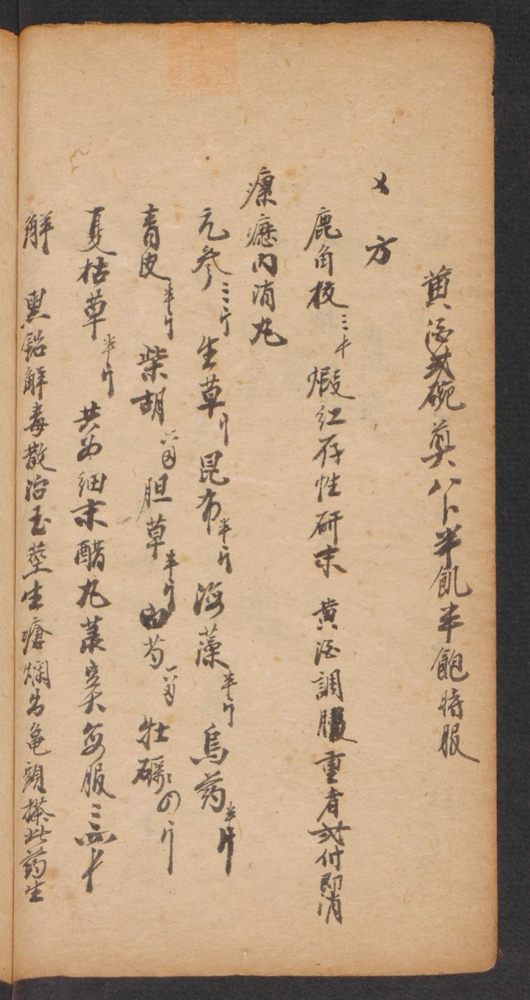 黄酒弍碗煎八卜半飢半飽時服
又方
鹿角枝三个 煅红存性研末 黄酒調服重者弍付即消
瘰癧内消丸
元参三斤生草斤昆布半斤海藻半斤烏药半斤
青皮半斤柴胡六两胆草半斤白芍六两牡礪四斤
夏枯草半斤 共为细末醋丸菉豆大每服三四十
解 黑铅解毒散治玉莖生瘡爛去龜頭搽此药生